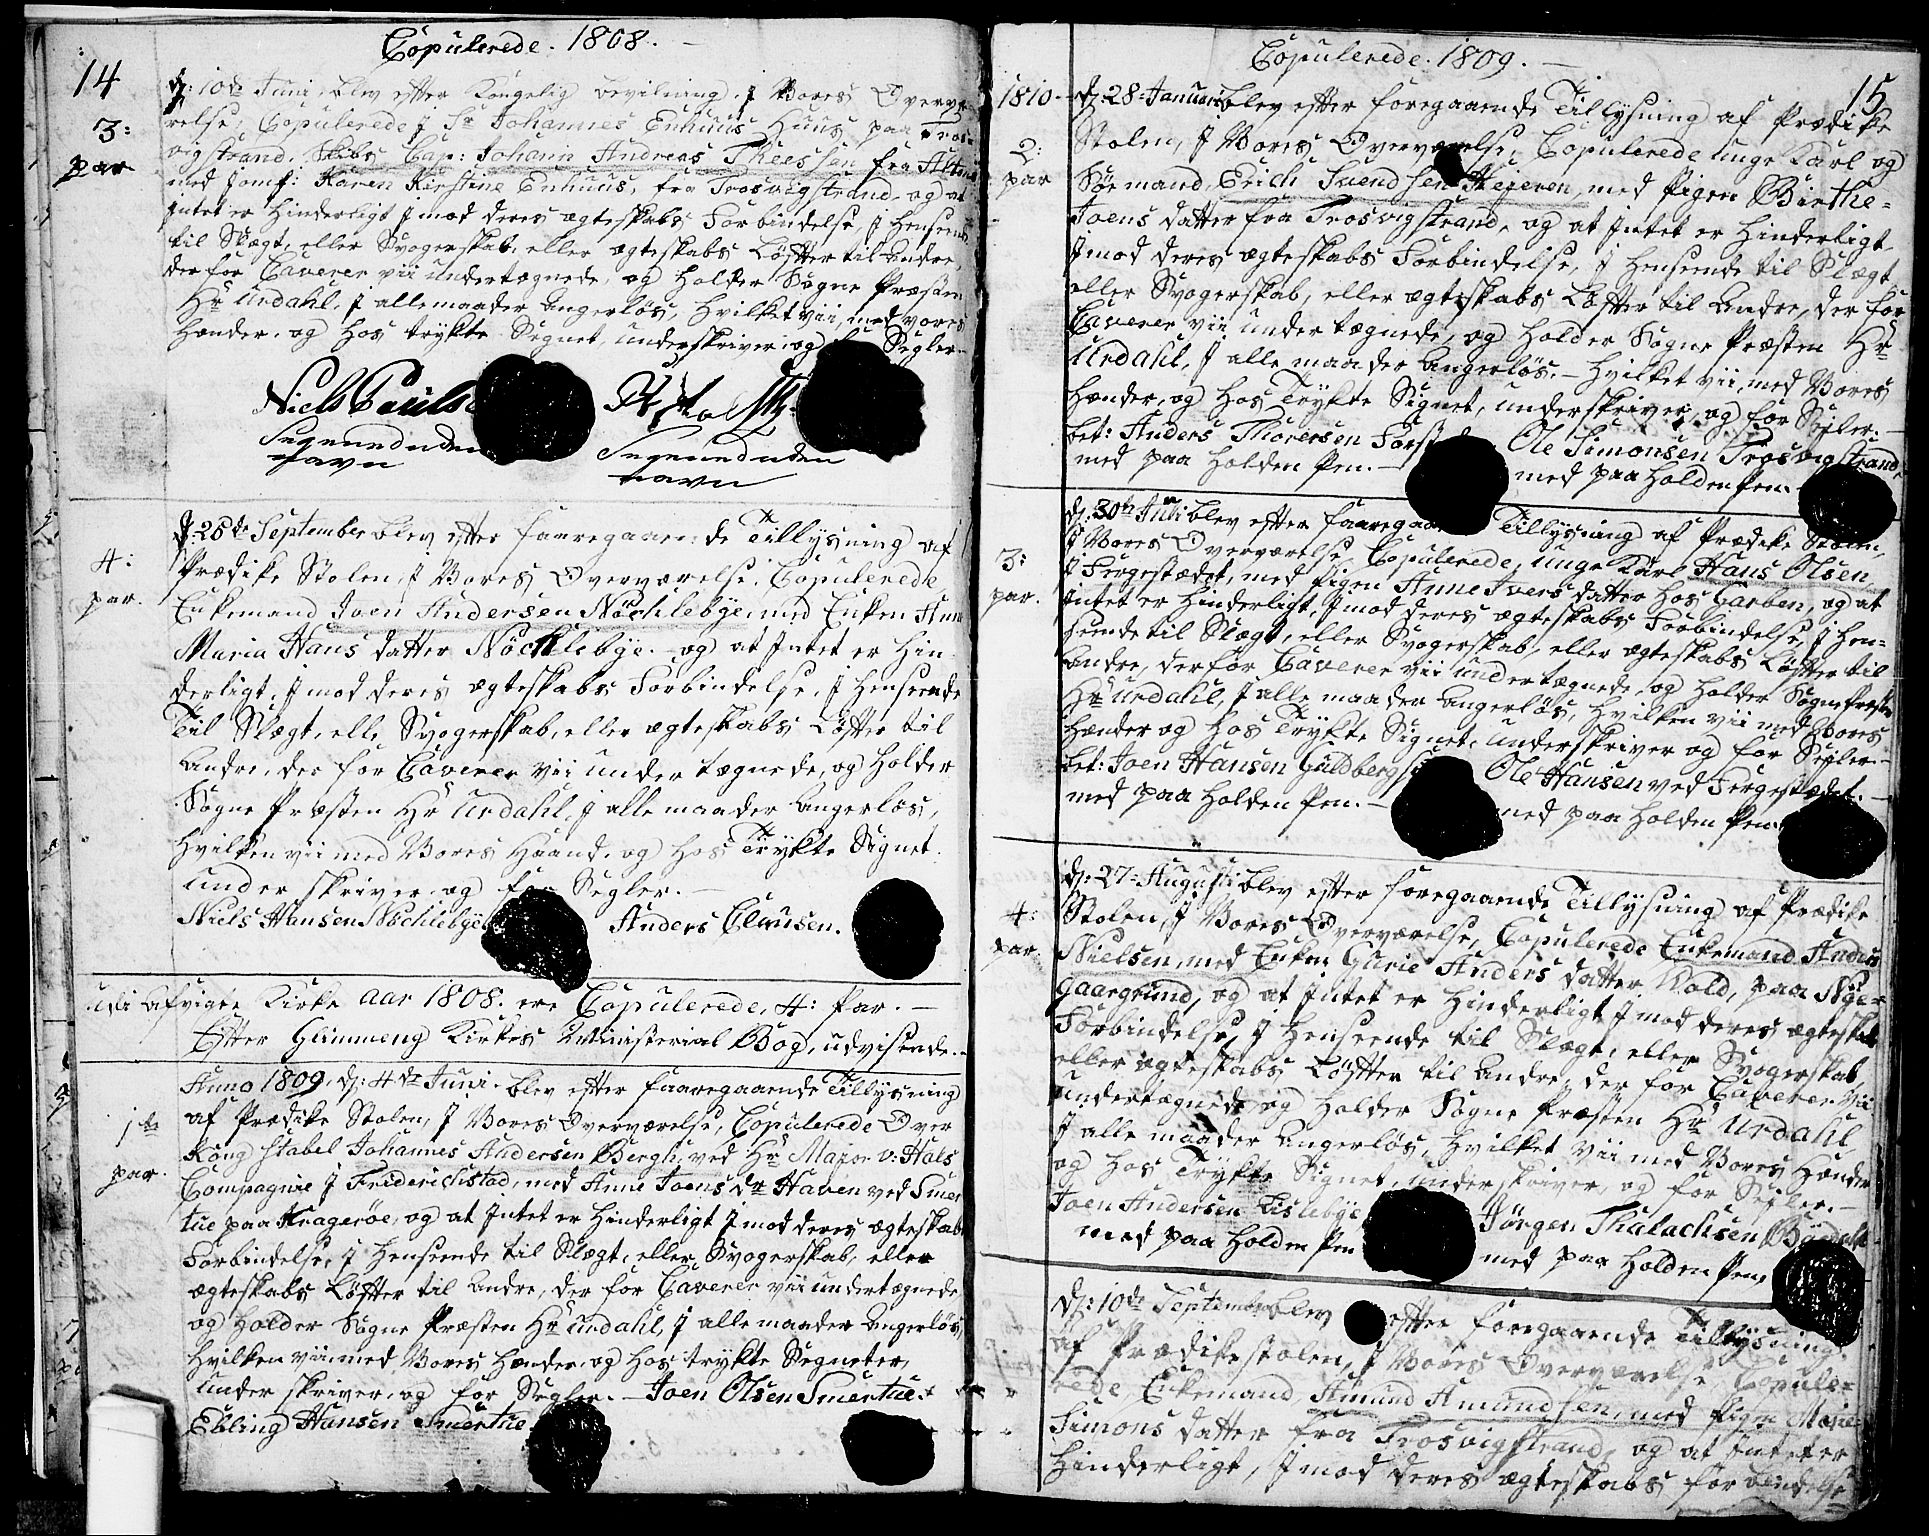 Copulerede. 1808.
14
3:
par
dj: 10de Juni, blev efter Kongelig bevilning, J Vores Overvæ-
relse, Copulerede J Sr Johannes Enhuus Huus, paa Tros-
vigstrand. Skibs Cap: Johann Andreas Theessen fra
med Jomf: Karen Kirstine Enhuus, fra Trosvigstrand, og at
Jntet er Hinderligt J mod deres ægteskabs Forbindelse, J Henseende
til Slægt, eller Svogerskab, eller ægteskabs Løfter til Andre,
derfor Caverer vii undertægnede, og holder Sogne Præsten
Hr Urdahl, J alle maader Angerløs, Hvilket vii, med vores
Hænder, og hos trykte Signet, underskriver, og Segler.
Niels Pouls
Segnned uden
navn
Segnned uden
navn
4:
par.
dj: 25de September blev efter faaregaaende Tillysning af
Prædike Stolen, J Vores Overværelse, Copulerede
Enkemand Joen Andersen Nöchlebÿe, med Enken Anne
Maria Hans datter Nöchlebÿe. og at Jntet er Hin-
derligt, J mod deres ægteskabs Forbindelse, J Henseende
Til Slægt, elle Svogerskab, eller ægteskabs Løfter til
Andre, der for Caverer vii undertægnede, og holder
Sogne Præsten Hr Urdahl, J alle maader Angerløs,
Hvilken vii med Vores Haand, og hos Trykte Signet
under skriver og for Segler.
Niels Hansen Nöchlebÿe Anders Clausen.
Udi Afvigte Kirke Aar 1808. ere Copulerede, 4: Par.
Efter Glimmeng Kirkes Ministerial Bog, udvisende.
1te
par.
Anno 1809, dj: 4de Juni. blev efter faaregaaende Tillysning
af Prædike Stolen, J Vores Overværelse, Copulerede Over
Kong stabel Johannes Andersen Bergh, ved Hr Major v: Hals
Compagnie J Friderichstad, med Anne Joens Dr Haven ved Smer
tue paa Kragerøe, og at Jntet er Hinderligt J mod deres ægteskabs
Forbindelse, J Henseende til Slægt, eller Svogerskab, eller
ægteskabs Løfter til Andre, der for Caverer vii undertægnede
og holder Sogne Præsten Hr Urdahl, J alle maader Angerløs,
Hvilken vii, med Vores Hænder, og hos trykte Segneter,
under skriver, og for Segler. Joen Olsen Smertue
Ebling Hansen Smertue
Copulerede. 1809.
15
1810.
2:
par
dj: 28: Januarii blev efter foregaaende Tillysning af Prædike
Stolen, J Vores Overværelse, Copulerede unge Karl og
Søemand, Erich Svendsen med Pigen Birthe
Joens datter fra Trosvigstrand, og at Jntet er Hinderligt
J mod deres ægteskabs Forbindelse, J Henseende til Slægt
eller Svogerskab, eller ægteskabs Løfter til Andre, der for
Caverer vii under tægnede, og holder Sogne Præsten Hr
Urdahl, J alle maader Angerløs. Hvilket vii, med Vores
Hænder, og hos Trykte Signet, underskriver, og for Segler.
bet: Anders Thoresen Ole Simonsen Trosvigstrand
med paa holden Pen. med paa holden Pen.
3:
par.
dj: 30te Juli blev efter faaregaa Tillysning af Prædike Stolen,
J Vores Overværelse, Copulerede, unge Karl Hans Olsen
J Fergestædet, med Pigen Anne Jvers datter hos Garben, og at
Jntet er Hinderligt, J mod deres ægteskabs Forbindelse, J Hen-
seende til Slægt, eller Svogerskab, eller ægteskabs Løfter til
Andre, der for Caverer vii undertægnede, og holder Sogne Præsten
Hr Urdahl, J alle maader Angerløs, Hvilken vii med Vores
Hænder og hos Trykte Signet, underskriver og for Segler.
bet: Joen Hansen Guldberg Ole Hansen ved Fergestædet.
med paa holden Pen. med paa holden Pen.
4:
par.
dj: 27: Augusti blev efter foregaaende Tillysning af Prædike
Stolen, J Vores Overværelse, Copulerede Enkemand Anders
Nielsen, med Enken Gurie Anders datter Vold, paa Nÿe-
Gaargrund, og at Jntet er Hinderligt J mod deres ægteskabs
Forbindelse, J Henseende til Slægt, eller Svogerskab,
eller ægteskabs Løfter til Andre, der for Caverer vii
undertægnede, og holder Sogne Præsten Hr Urdahl
J alle maader Angerløs, Hvilket vii med Vores Hænder
og hos Trykte Signet, underskriver, og for Segler.
Joen Andersen Lislebÿe Jörgen Thalachsen
med paa holden Pen med paa holden Pen
dj: 10de September blev efter foregaaende Tillysning
af Prædikestolen, J Vores Overværelse, Copule-
rede Enkemand, Amund Amundsen, med Pigen Marie
Simons datter fra Trosvigstrand, og at Jntet er
Hinderligt, J mod deres ægteskabs forbindelse